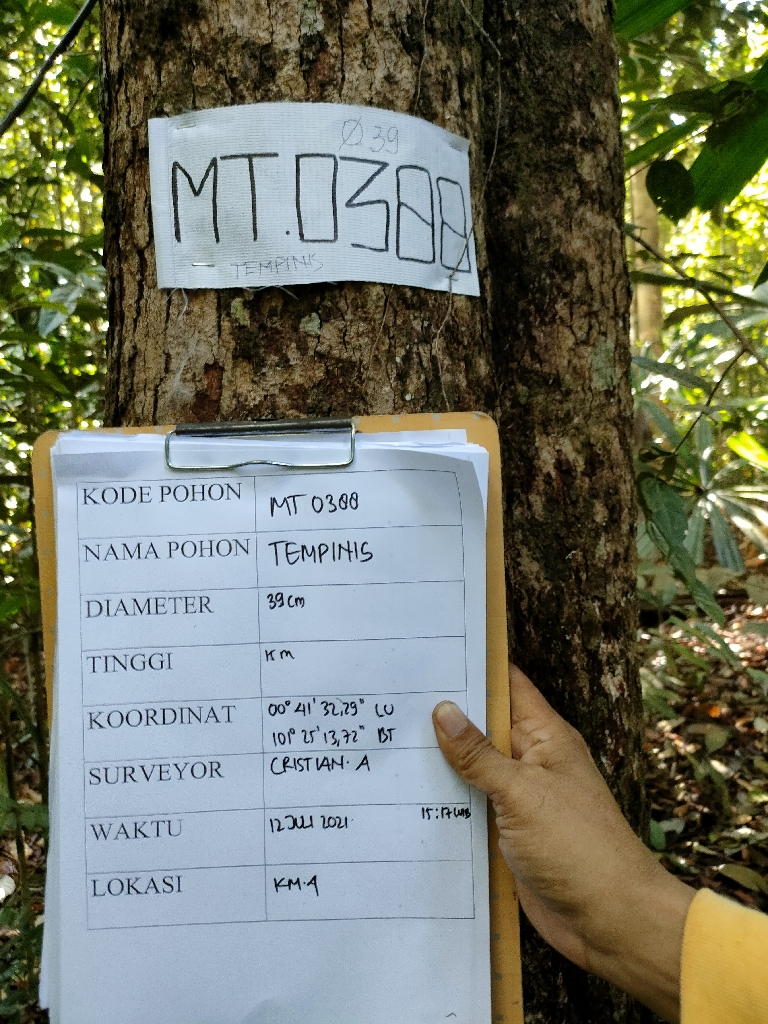 Ø 39
MT.0388
TEMPINIS
KODE POHON MT 0388
NAMA POHON TEMPINIS
DIAMETER 39 cm
TINGGI 15 m
KOORDINAT 00° 41' 32,29" LU
101° 25' 13,72" BT
SURVEYOR CRISTIAN. A
WAKTU 12 JULI 2021 15:17 WIB
LOKASI KM.4